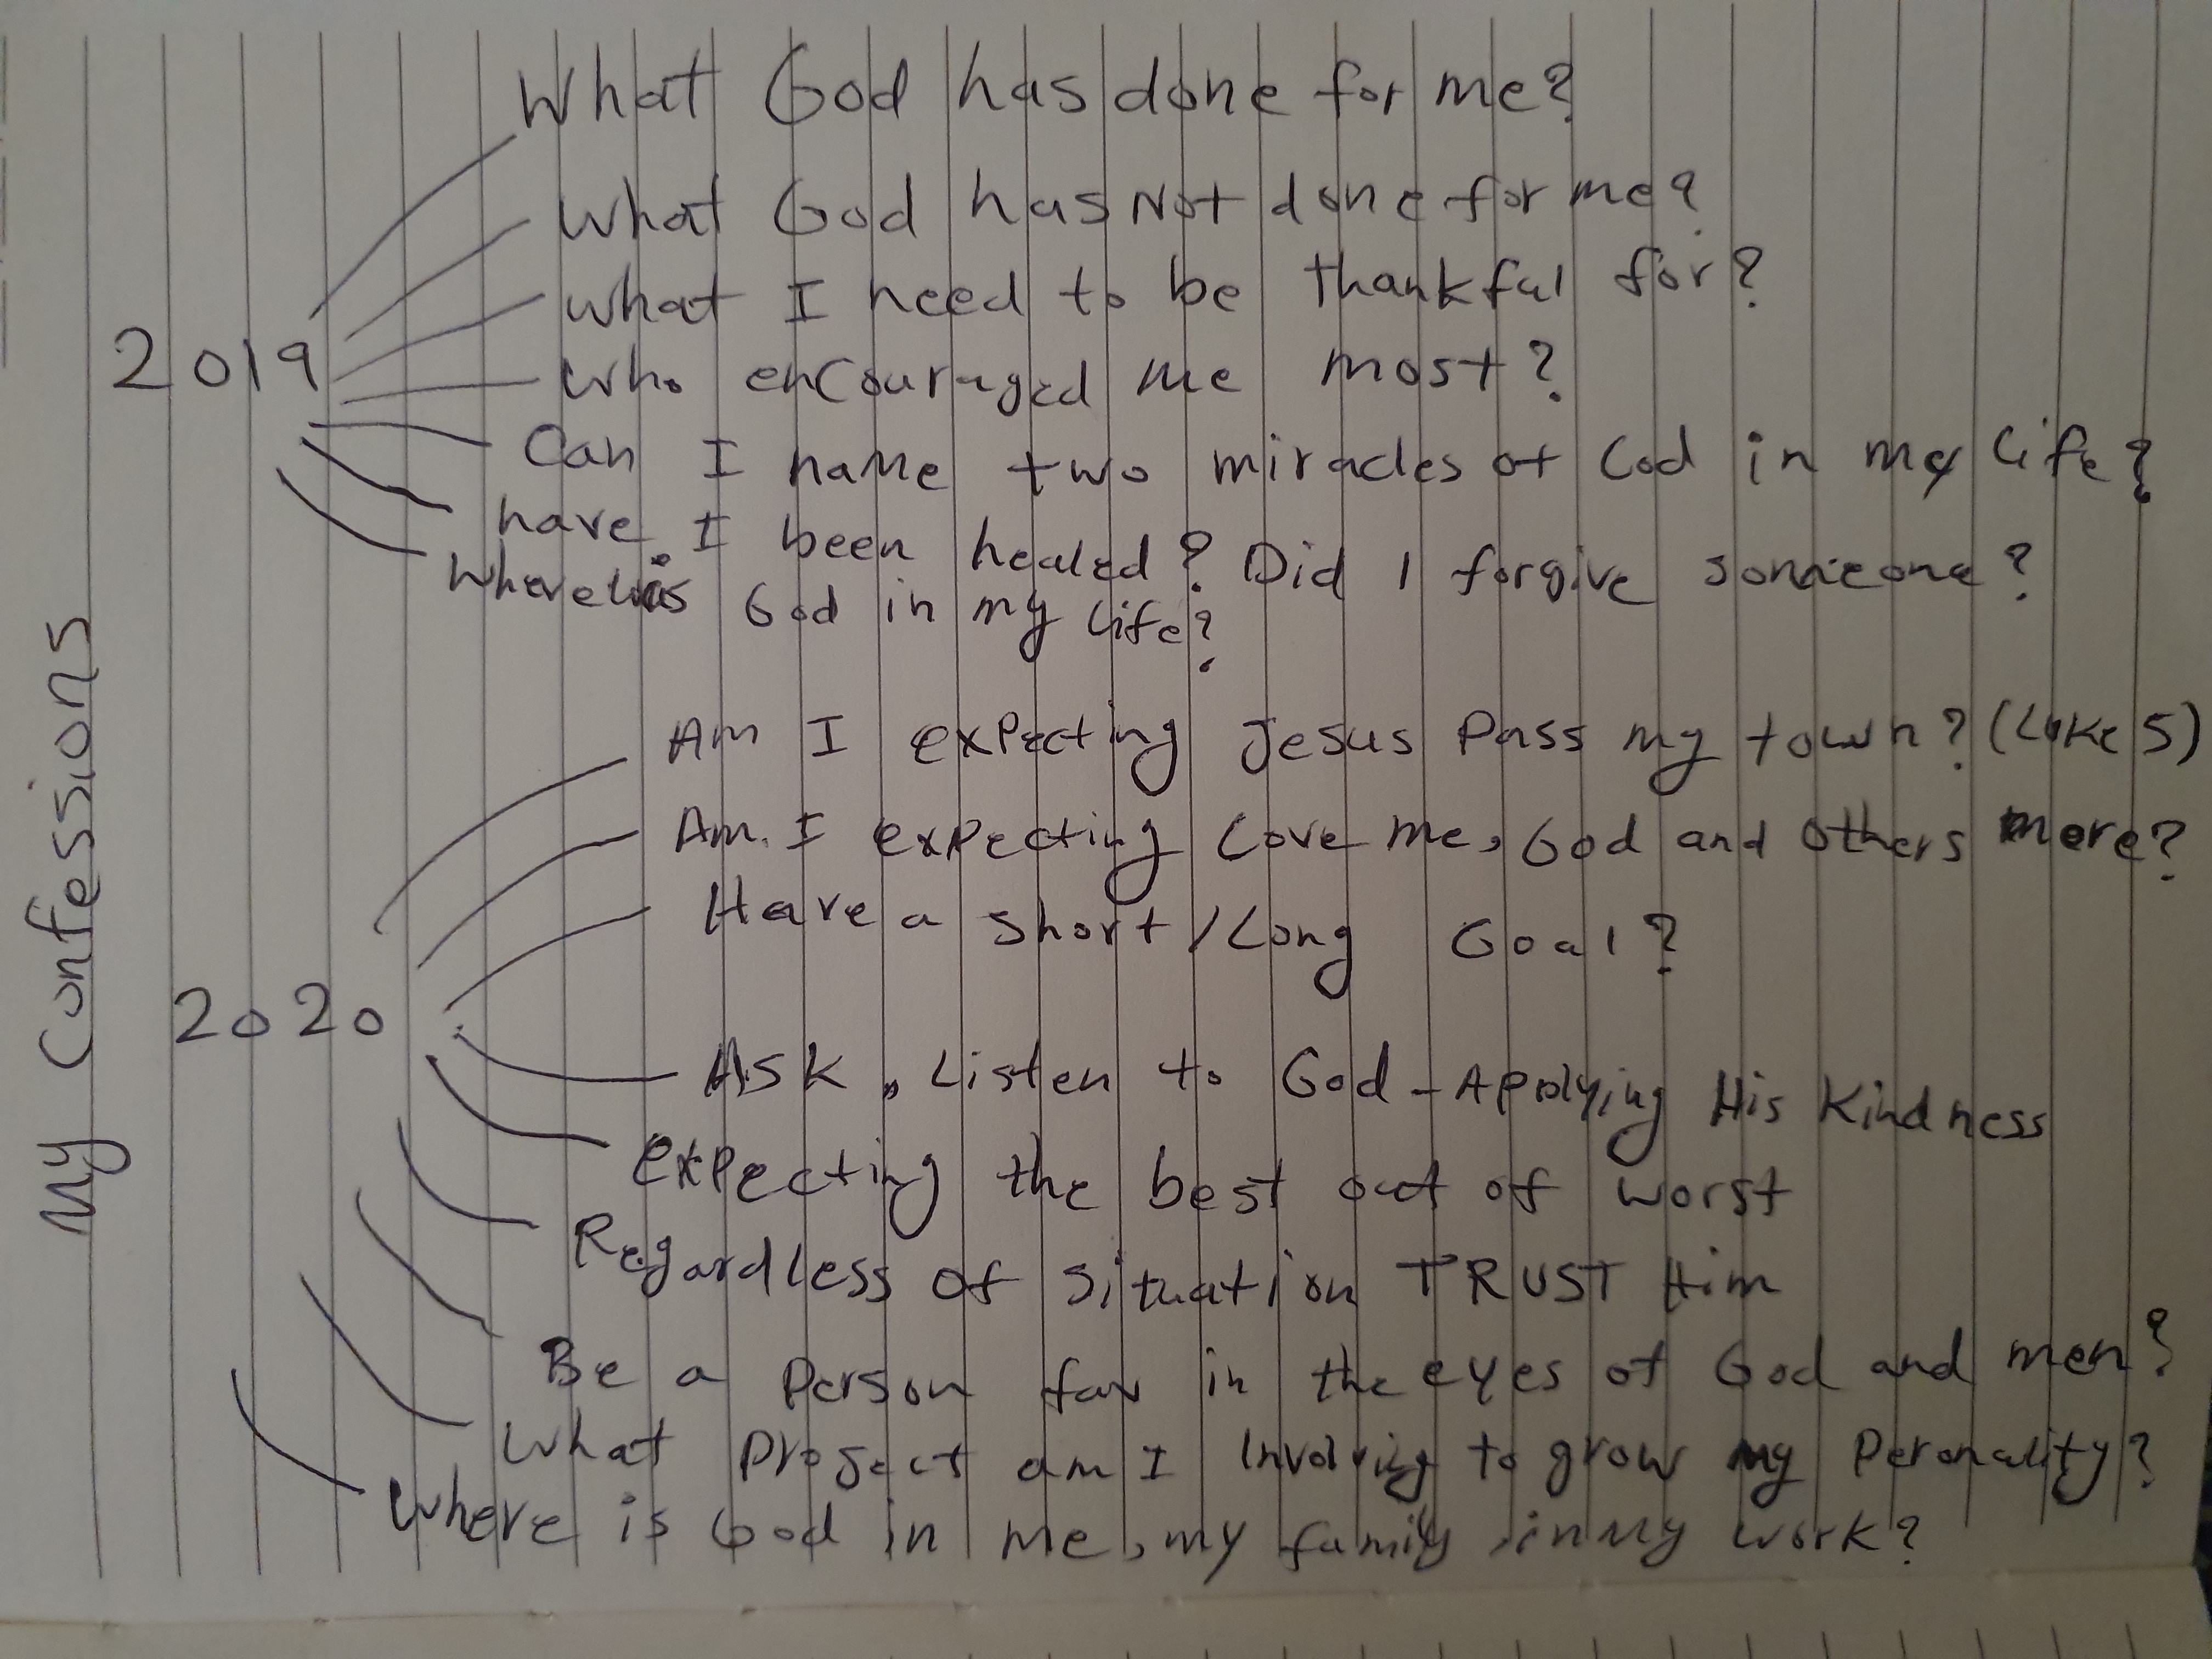 My Confessions
2019
What God has done for me?
What God has Not done for me?
What I need to be thankful for?
Who encouraged me most?
Can I name two miracles of God in my life?
have I been healed? Did I forgive someone?
Where is God in my life?
2020
Am I expecting Jesus Pass my town? (Luke 5)
Am I expecting Love me, God and others more?
Have a short/Long Goal?
Ask, Listen to God - Applying His Kindness
Expecting the best out of worst
Regardless of situation TRUST Him
Be a Person fav in the eyes of God and men?
What Project am I Involving to grow my Peronality?
Where is God in me, my family, in my work?